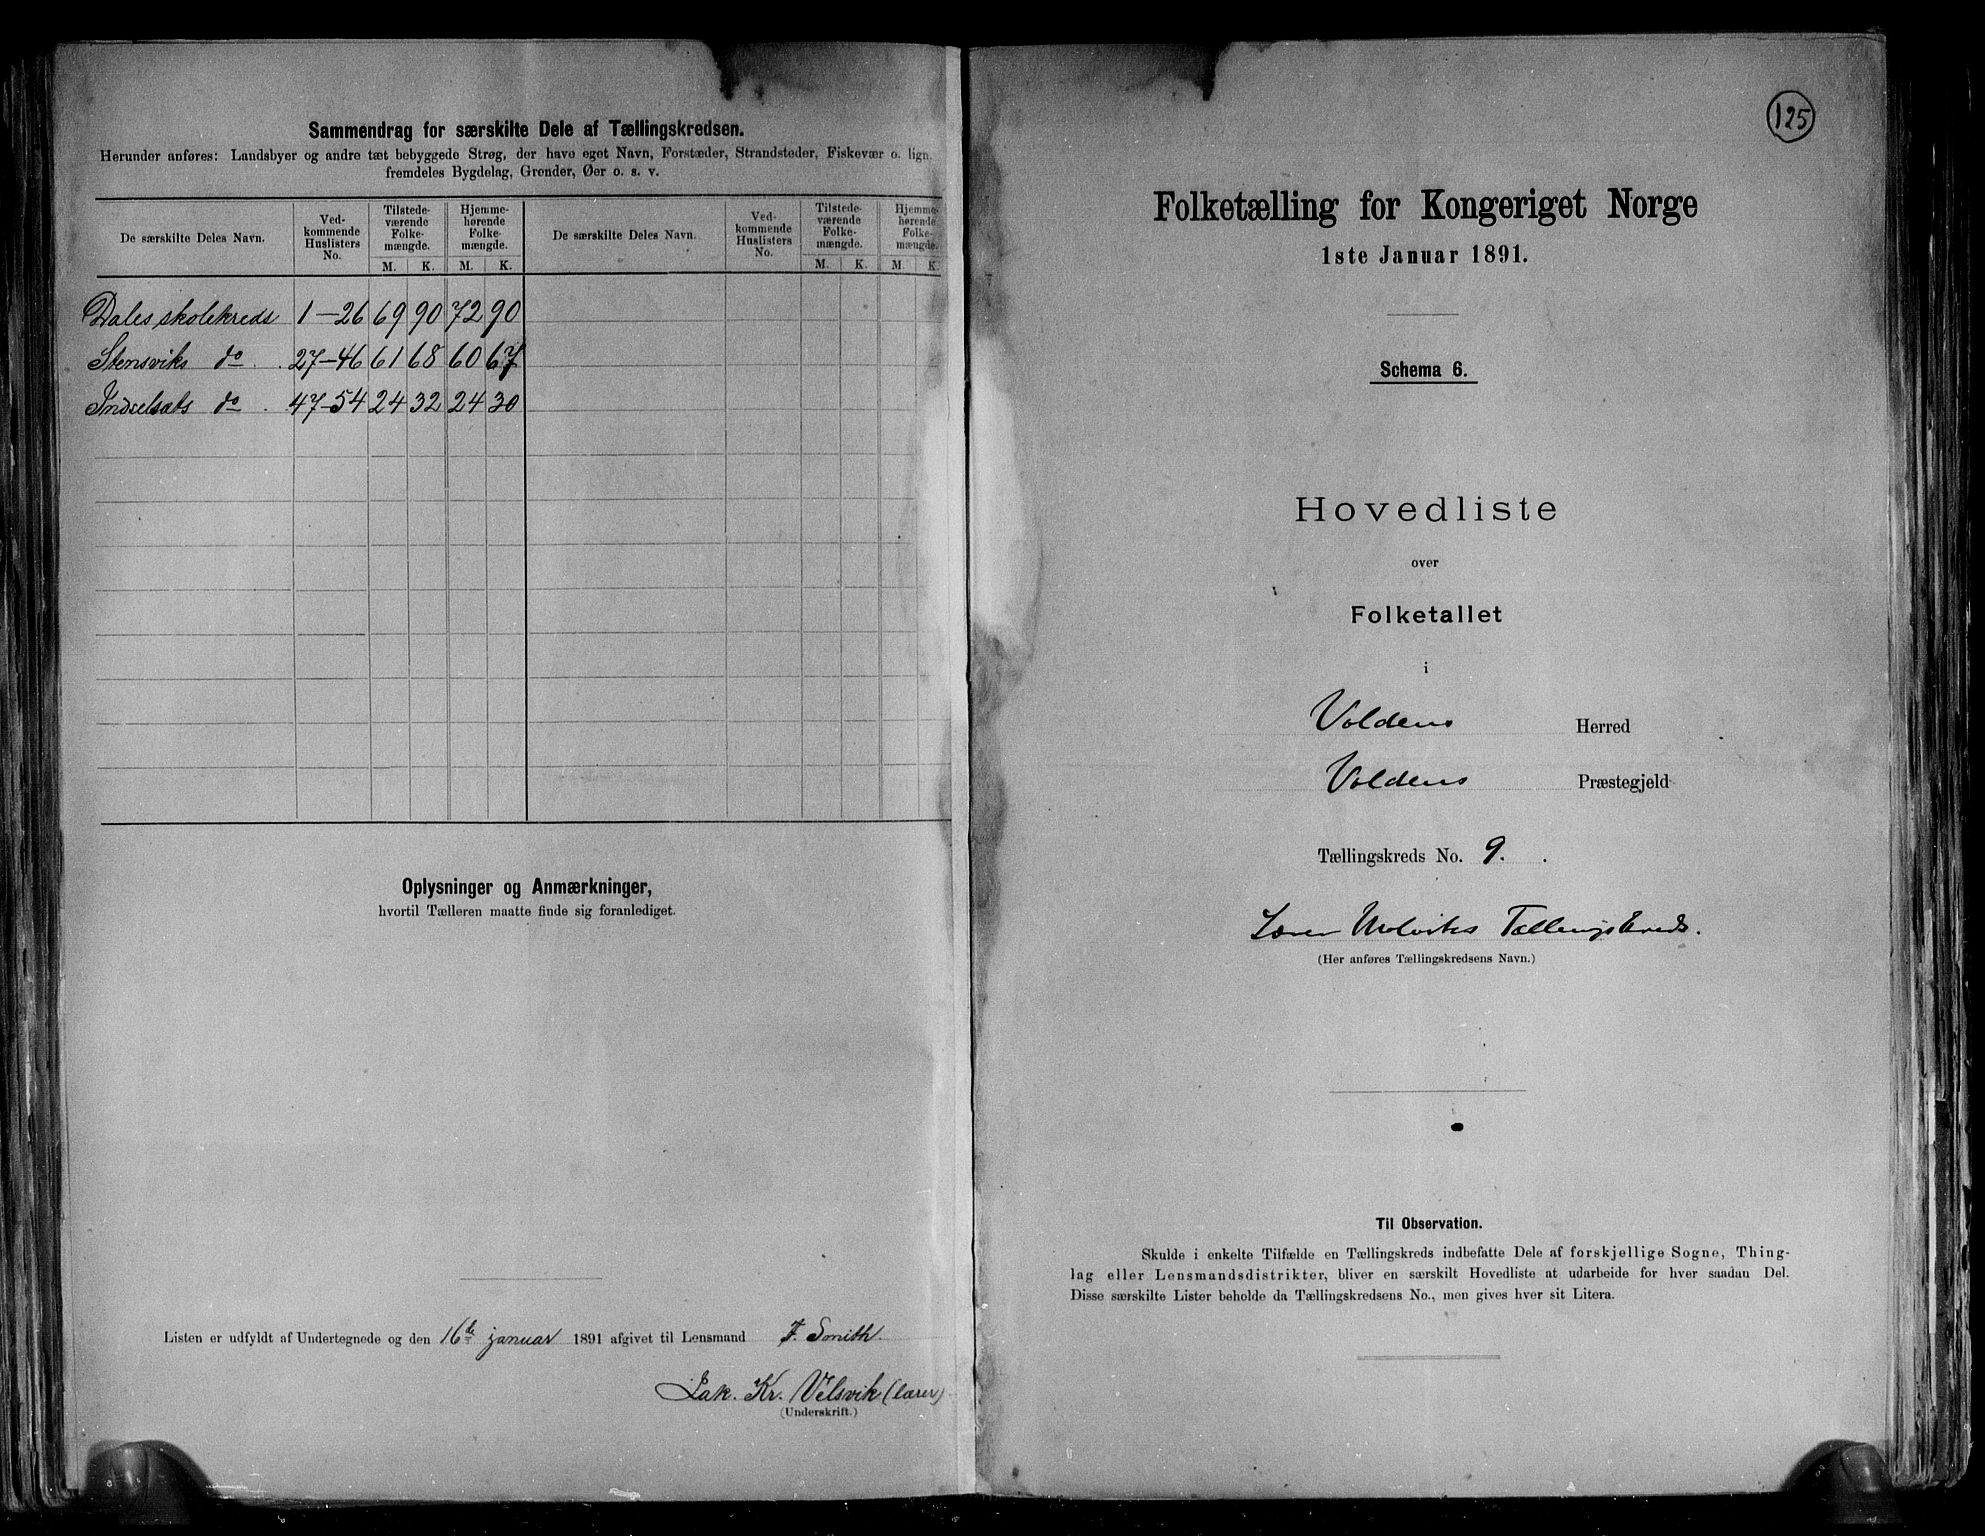 Sammendrag for særskilte Dele af Tællingskredsen.
Herunder anføres: Landsbyer og andre tæt bebyggede Strøg, der have eget Navn, Forstæder, Strandsteder, Fiskevær o. lign.
fremdeles Bygdelag, Grender, Øer o. s. v.
De særskilte Deles Navn.
Ved-
kommende
Huslisters
No.
Tilstede-
værende
Folke-
mængde.
Hjemme-
hørende
Folke-
mængde.
M. K. M. K.
De særskilte Deles Navn.
Ved-
kommende
Huslisters
No.
Tilstede-
værende
Folke-
mængde.
Hjemme-
hørende
Folke-
mængde.
M. K. M. K.
Dales skolekreds 1-26 69 90 72 90
Stensviks do 27-46 61 68 60 67
Indselsæts do 47-54 24 32 24 30
Oplysninger og Anmærkninger,
hvortil Tælleren maatte finde sig foranlediget.
Listen er udfyldt af Undertegnede og den 16de januar 1891 afgivet til Lensmand F. Smith.
Jak. Kr. Velsvik (lærer)
(Underskrift.)
125
Folketælling for Kongeriget Norge
1ste Januar 1891.
Schema 6.
Hovedliste
over
Folketallet
i
Voldens Herred
Voldens Præstegjeld
Tællingskreds No. 9.
Lærer Tællingskreds.
(Her anføres Tællingskredsens Navn.)
Til Observation.
Skulde i enkelte Tilfælde en Tællingskreds indbefatte Dele af forskjellige Sogne, Thing-
lag eller Lensmandsdistrikter, bliver en særskilt Hovedliste at udarbeide for hver saadan Del.
Disse særskilte Lister beholde da Tællingskredsens No., men gives hver sit Litera.